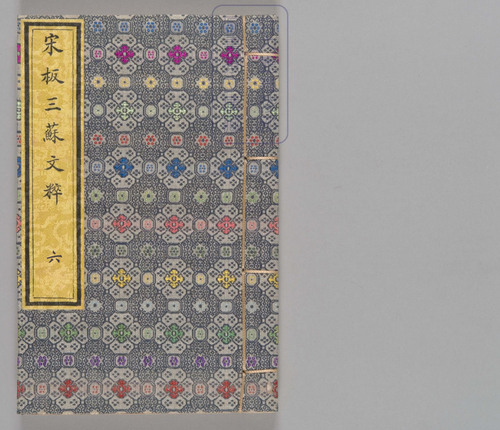 宋板三蘇文粹
六